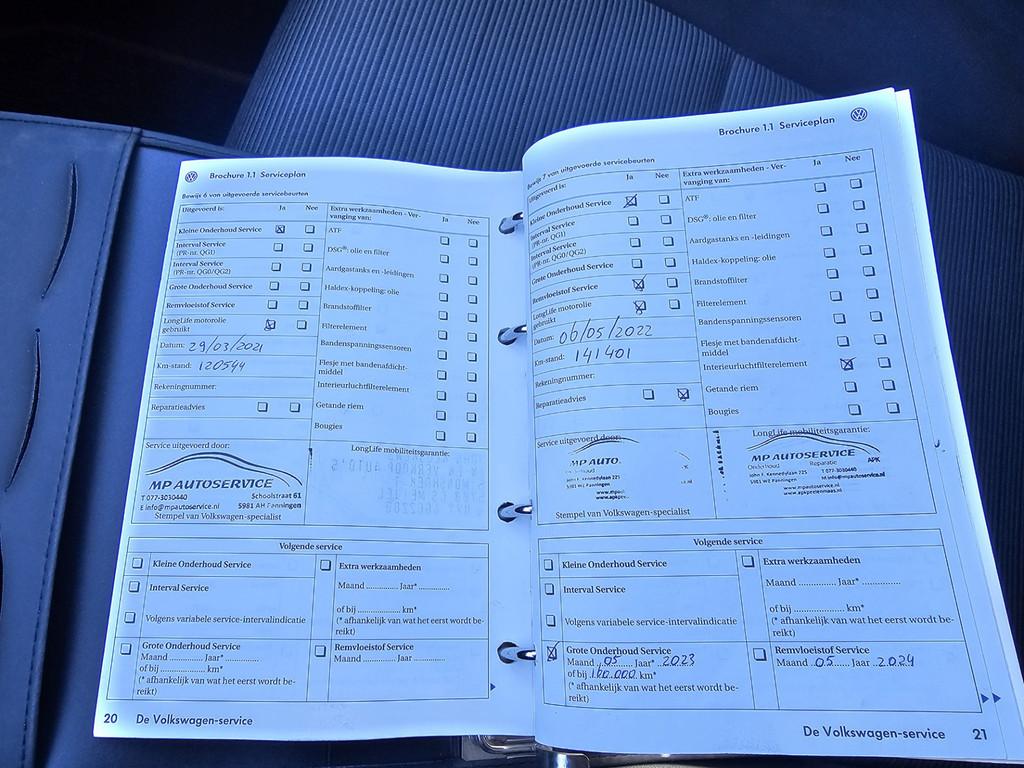 Brochure 1.1 Serviceplan
Bewijs 6 van uitgevoerde servicebeurten
Uitgevoerd is: Ja Nee
Kleine Onderhoud Service
Interval Service
(PR-nr. QG1)
Interval Service
(PR-nr. QG0/QG2)
Grote Onderhoud Service
Remvloeistof Service
LongLife motorolie
gebruikt
Datum: 29/03/2021
Km-stand: 120544
Rekeningnummer:
Reparatieadvies
Extra werkzaamheden - Ver-
vanging van: Ja Nee
ATF
DSG®: olie en filter
Aardgastanks en -leidingen
Haldex-koppeling: olie
Brandstoffilter
Filterelement
Bandenspanningssensoren
Flesje met bandenafdicht-
middel
Interieurluchtfilterelement
Getande riem
Bougies
Service uitgevoerd door:
MP AUTOSERVICE
T 077-3030440 Schoolstraat 61
E info@mpautoservice.nl 5981 AH Panningen
Stempel van Volkswagen-specialist
LongLife mobiliteitsgarantie:
Volgende service
Kleine Onderhoud Service
Interval Service
Volgens variabele service-intervalindicatie
Extra werkzaamheden
Maand ............ Jaar* ............
of bij ................ km*
(* afhankelijk van wat het eerst wordt be-
reikt)
Grote Onderhoud Service
Maand ............ Jaar* ............
of bij ................ km*
(* afhankelijk van wat het eerst wordt be-
reikt)
Remvloeistof Service
Maand ............ Jaar ............
20 De Volkswagen-service
Brochure 1.1 Serviceplan
Bewijs 7 van uitgevoerde servicebeurten
Uitgevoerd is: Ja Nee
Kleine Onderhoud Service
Interval Service
(PR-nr. QG1)
Interval Service
(PR-nr. QG0/QG2)
Grote Onderhoud Service
Remvloeistof Service
LongLife motorolie
gebruikt
Datum: 06/05/2022
Km-stand: 141401
Rekeningnummer:
Reparatieadvies
Extra werkzaamheden - Ver-
vanging van: Ja Nee
ATF
DSG®: olie en filter
Aardgastanks en -leidingen
Haldex-koppeling: olie
Brandstoffilter
Filterelement
Bandenspanningssensoren
Flesje met bandenafdicht-
middel
Interieurluchtfilterelement
Getande riem
Bougies
Service uitgevoerd door:
MP AUTO
John F. Kennedylaan 225
5981 WZ Panningen
Stempel van Volkswagen-specialist
LongLife mobiliteitsgarantie:
MP AUTOSERVICE
Onderhoud Reparatie APK
John F. Kennedylaan 225 T 077-3030440
5981 WZ Panningen M info@mpautoservice.nl
www.mpautoservice.nl
Volgende service
Kleine Onderhoud Service
Interval Service
Volgens variabele service-intervalindicatie
Extra werkzaamheden
Maand ............ Jaar* ............
of bij ................ km*
(* afhankelijk van wat het eerst wordt be-
reikt)
Grote Onderhoud Service
Maand 05 Jaar* 2023
of bij km*
(* afhankelijk van wat het eerst wordt be-
reikt)
Remvloeistof Service
Maand 05 Jaar 2024
De Volkswagen-service 21